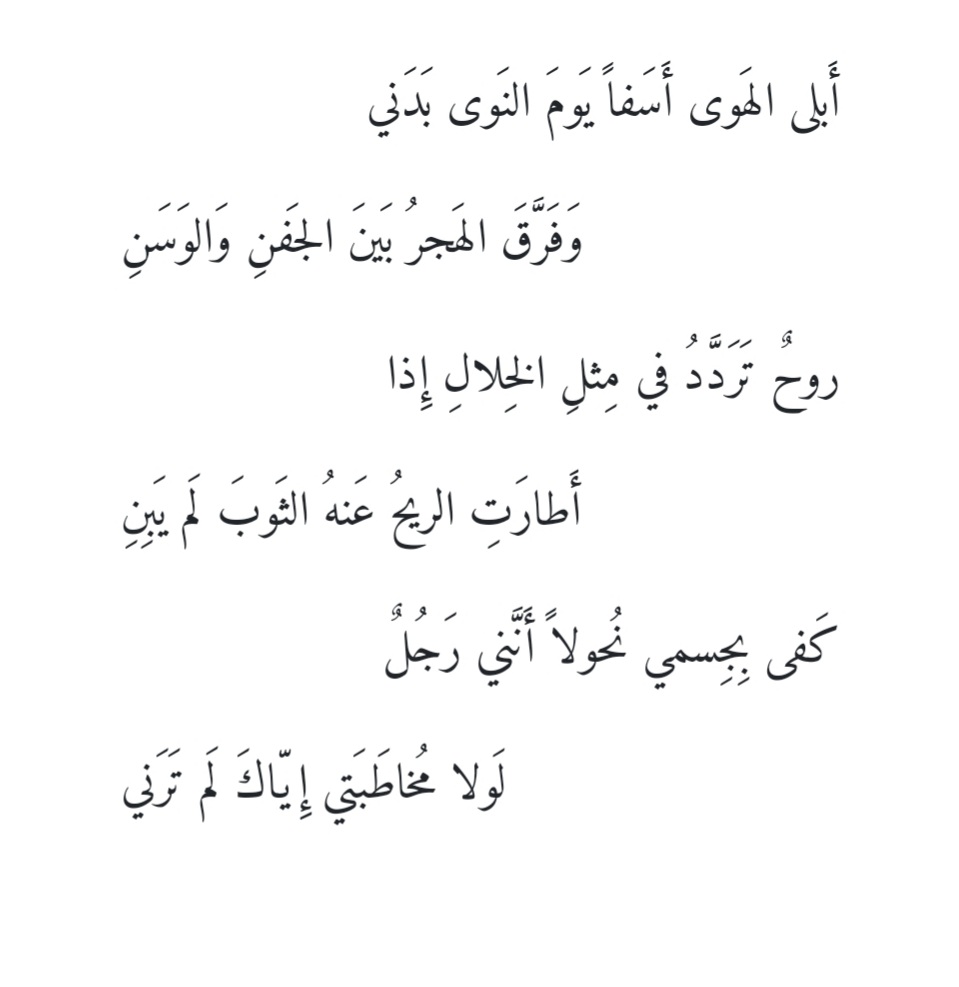 أَبلى الهَوى أَسَفاً يَومَ النَوى بَدَني
وَفَرَّقَ الهَجرُ بَينَ الجَفنِ وَالوَسَنِ
روحٌ تَرَدَّدُ في مِثلِ الخِلالِ إِذا
أَطارَتِ الريحُ عَنهُ الثَوبَ لَم يَبِنِ
كَفى بِجِسمي نُحولاً أَنَّني رَجُلٌ
لَولا مُخاطَبَتي إِيّاكَ لَم تَرَني